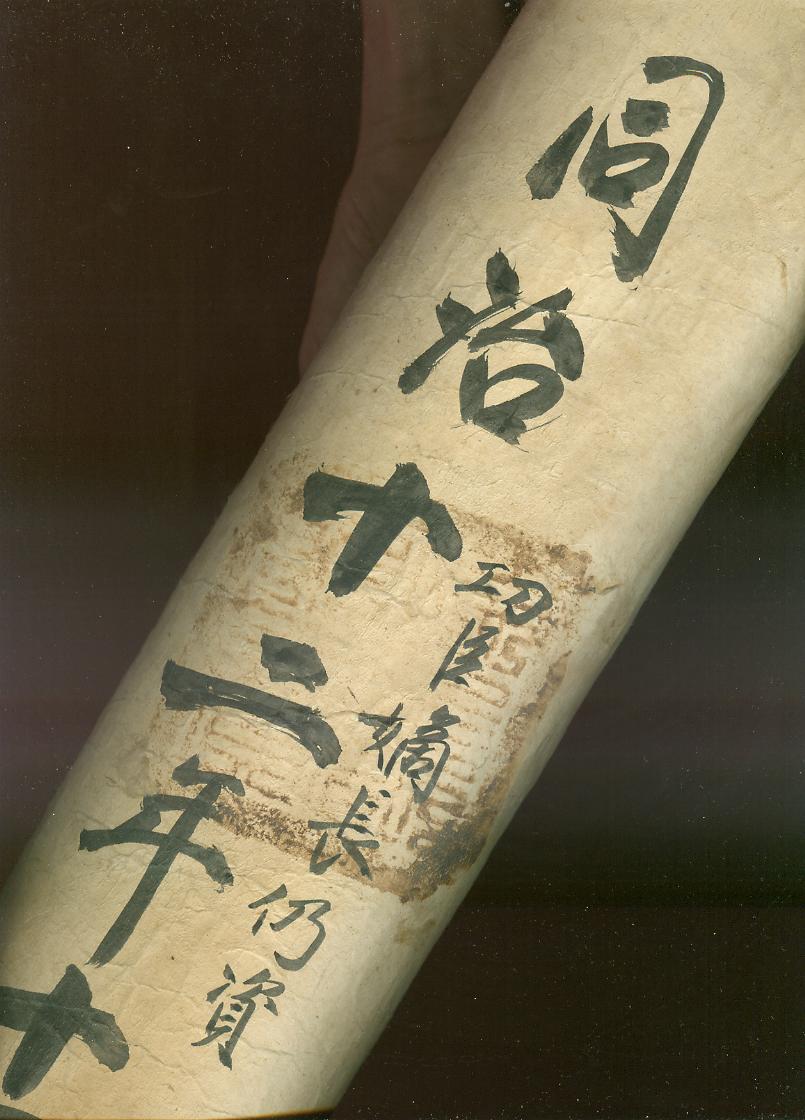 同治十二年十
功臣嫡長仍資